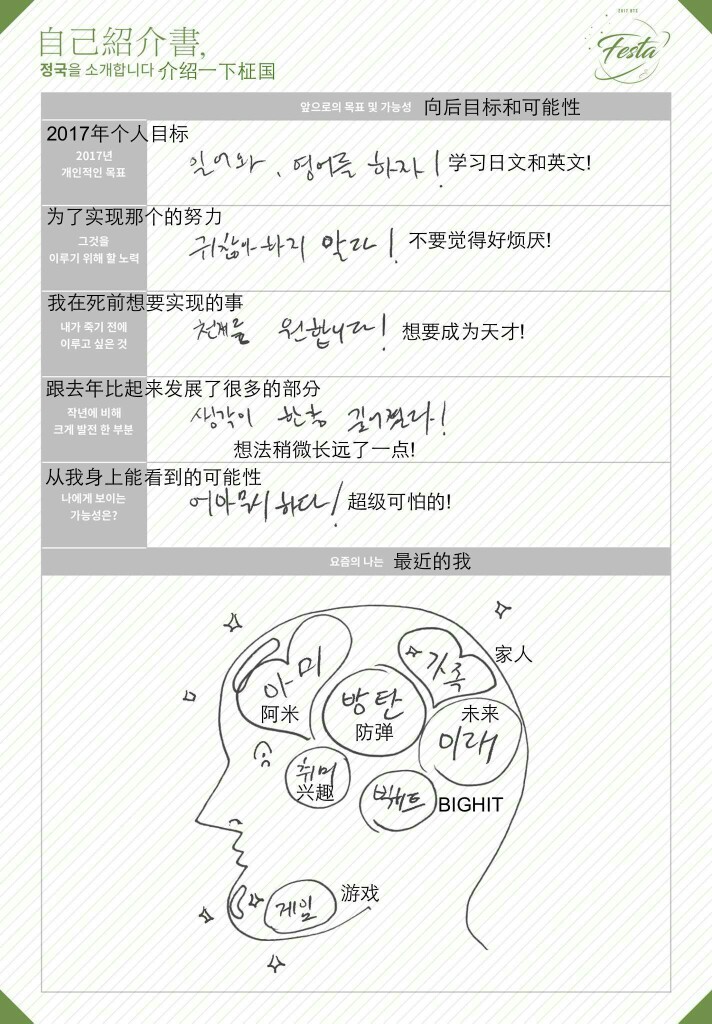 2017 BTS
Festa
自己紹介書,
정국을 소개합니다 介绍一下柾国
앞으로의 목표 및 가능성 向后目标和可能性
2017年个人目标
2017년
개인적인 목표
일어와, 영어를 하자! 学习日文和英文!
为了实现那个的努力
그것을
이루기 위해 할 노력
귀찮아하지 말라! 不要觉得好烦厌!
我在死前想要实现的事
내가 죽기 전에
이루고 싶은 것
천재를 원합니다! 想要成为天才!
跟去年比起来发展了很多的部分
작년에 비해
크게 발전 한 부분
생각이 한층 깊어졌다!
想法稍微长远了一点!
从我身上能看到的可能性
나에게 보이는
가능성은?
어마무시하다! 超级可怕的!
요즘의 나는 最近的我
아미
阿米
방탄
防弹
가족
家人
未来
미래
취미
兴趣
빅히트
BIGHIT
게임
游戏